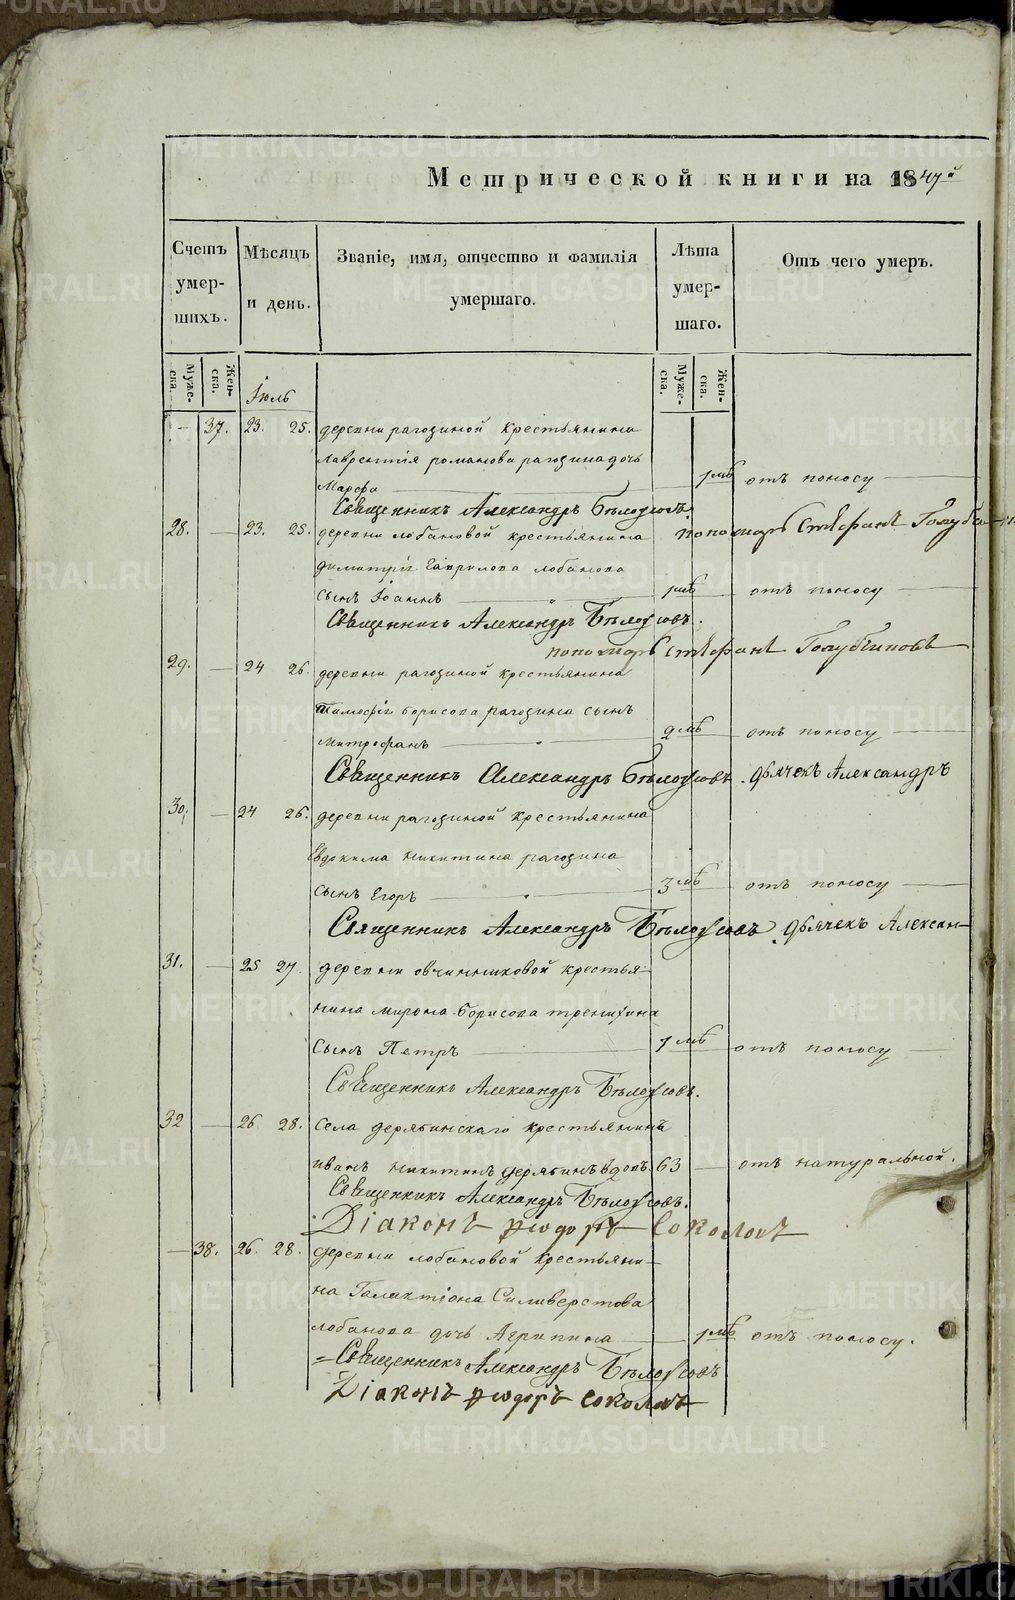 Метрической книги на 1847й
Счетъ умершихъ.
Мѣсяцъ и день.
Званіе, имя, отчество и фамилія умершаго.
Лѣта умершаго.
Отъ чего умеръ.
Мужеска.
Женска.
Мужеска.
Женска.
Іюль
— 37. 23. 25. деревни рагозиной крестьянина
Лаврентія романова рагозина дочь
Марѳа — 1 мѣ отъ поносу
Священникъ Александръ Бѣлоусовъ
пономарь Стефанъ
28. — 23. 25. деревни лобановой крестьянина
димитрія Гаврилова лобанова
сынъ Іоаннъ — 1 мѣ отъ поносу
Священникъ Александръ Бѣлоусовъ.
пономарь Стефанъ Голубчиковъ
29. — 24 26. деревни рагозиной крестьянина
Тимофія борисова рагозина сынъ
Митрофанъ — 2 мѣ отъ поносу
Священникъ Александръ Бѣлоусовъ. дьячекъ Александръ
30. — 24 26. деревни рагозиной крестьянина
Евдокима никитина рагозина
сынъ Егоръ — 3 мѣ отъ поносу
Священникъ Александръ Бѣлоусовъ дьячекъ Алексан—
31. — 25 27. деревни овчинниковой крестья—
нина мирона борисова
сынъ Петръ — 1 мѣ отъ поносу
Священникъ Александръ Бѣлоусовъ.
32 — 26 28. Села дерябинскаго крестьянинъ
иванъ никитинъ дерябинъ вдовъ. 63 — отъ натуральной.
Священникъ Александръ Бѣлоусовъ.
Діаконъ Ѳеодоръ Соколовъ
— 38. 26. 28. деревни лобановой крестьяни—
на Галактіона Силиверстова
лобанова дочь Агрипина — 1 мѣ отъ поносу.
Священникъ Александръ Бѣлоусовъ
Діаконъ Ѳеодоръ Соколовъ
METRIKI.GASO-URAL.RU